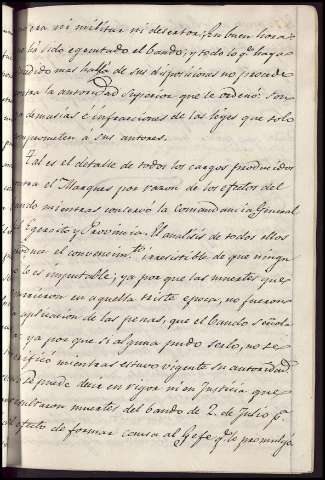 era ni militar ni desertor; En buen hora
ha sido egecutado el bando; y todo lo q.e haya
dido mas halla de sus disposiciones no procede
ntra la autoridad superior que le ordenó: son
demasias é infracciones de las leyes que solo
mprometen á sus autores.
Tal es el detalle de todos los cargos producidos
ntra el Marques por razon de los efectos del
ando mientras conservó la Comandancia General
el Egercito y Provincia. El analisis de todos ellos
el convencim.to irresistible de que ningu
le es imputable; ya por que las muertes que
rrieron en aquella triste epoca, no fueron
aplicacion de las penas, que el bando señala
ya por que si alguna pudo serlo, no se
ificó mientras estuvo vigente su autoridad.
se puede decir en rigor ni en Justicia que
sultaron muertes del bando de 2. de Julio p.a
efecto de formar causa al Gefe q.e le promulgó